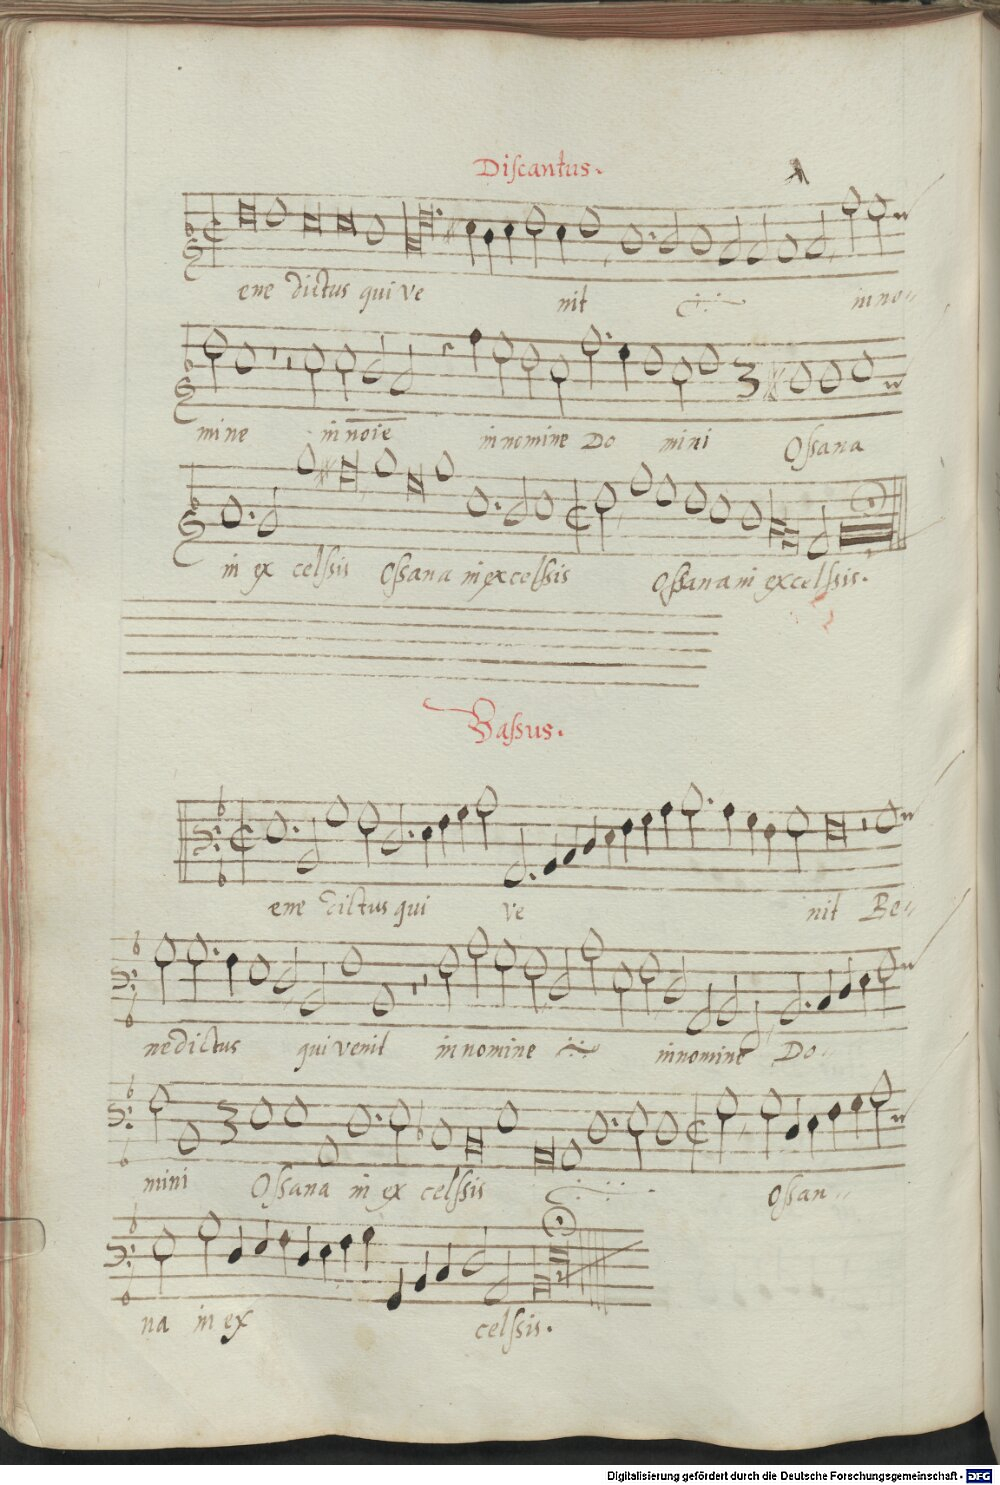 Discantus.
ene dictus qui ve nit in no
mine in noie in nomine Do mini Ossana
in ex celssis Ossana in excelssis Ossana in excelssis.
Bassus.
ene dictus qui ve nit Be
nedictus qui venit in nomine in nomine Do
mini Ossana in ex celssis Ossan
na in ex celssis.
Digitalisierung gefördert durch die Deutsche Forschungsgemeinschaft - DFG